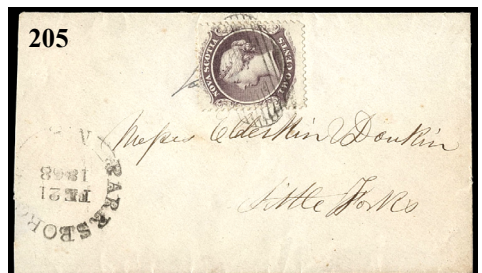 205
NOVA SCOTIA
CENTS
Messrs Elderkin & Donkin
Little Forks
PARRSBORO
21
1868